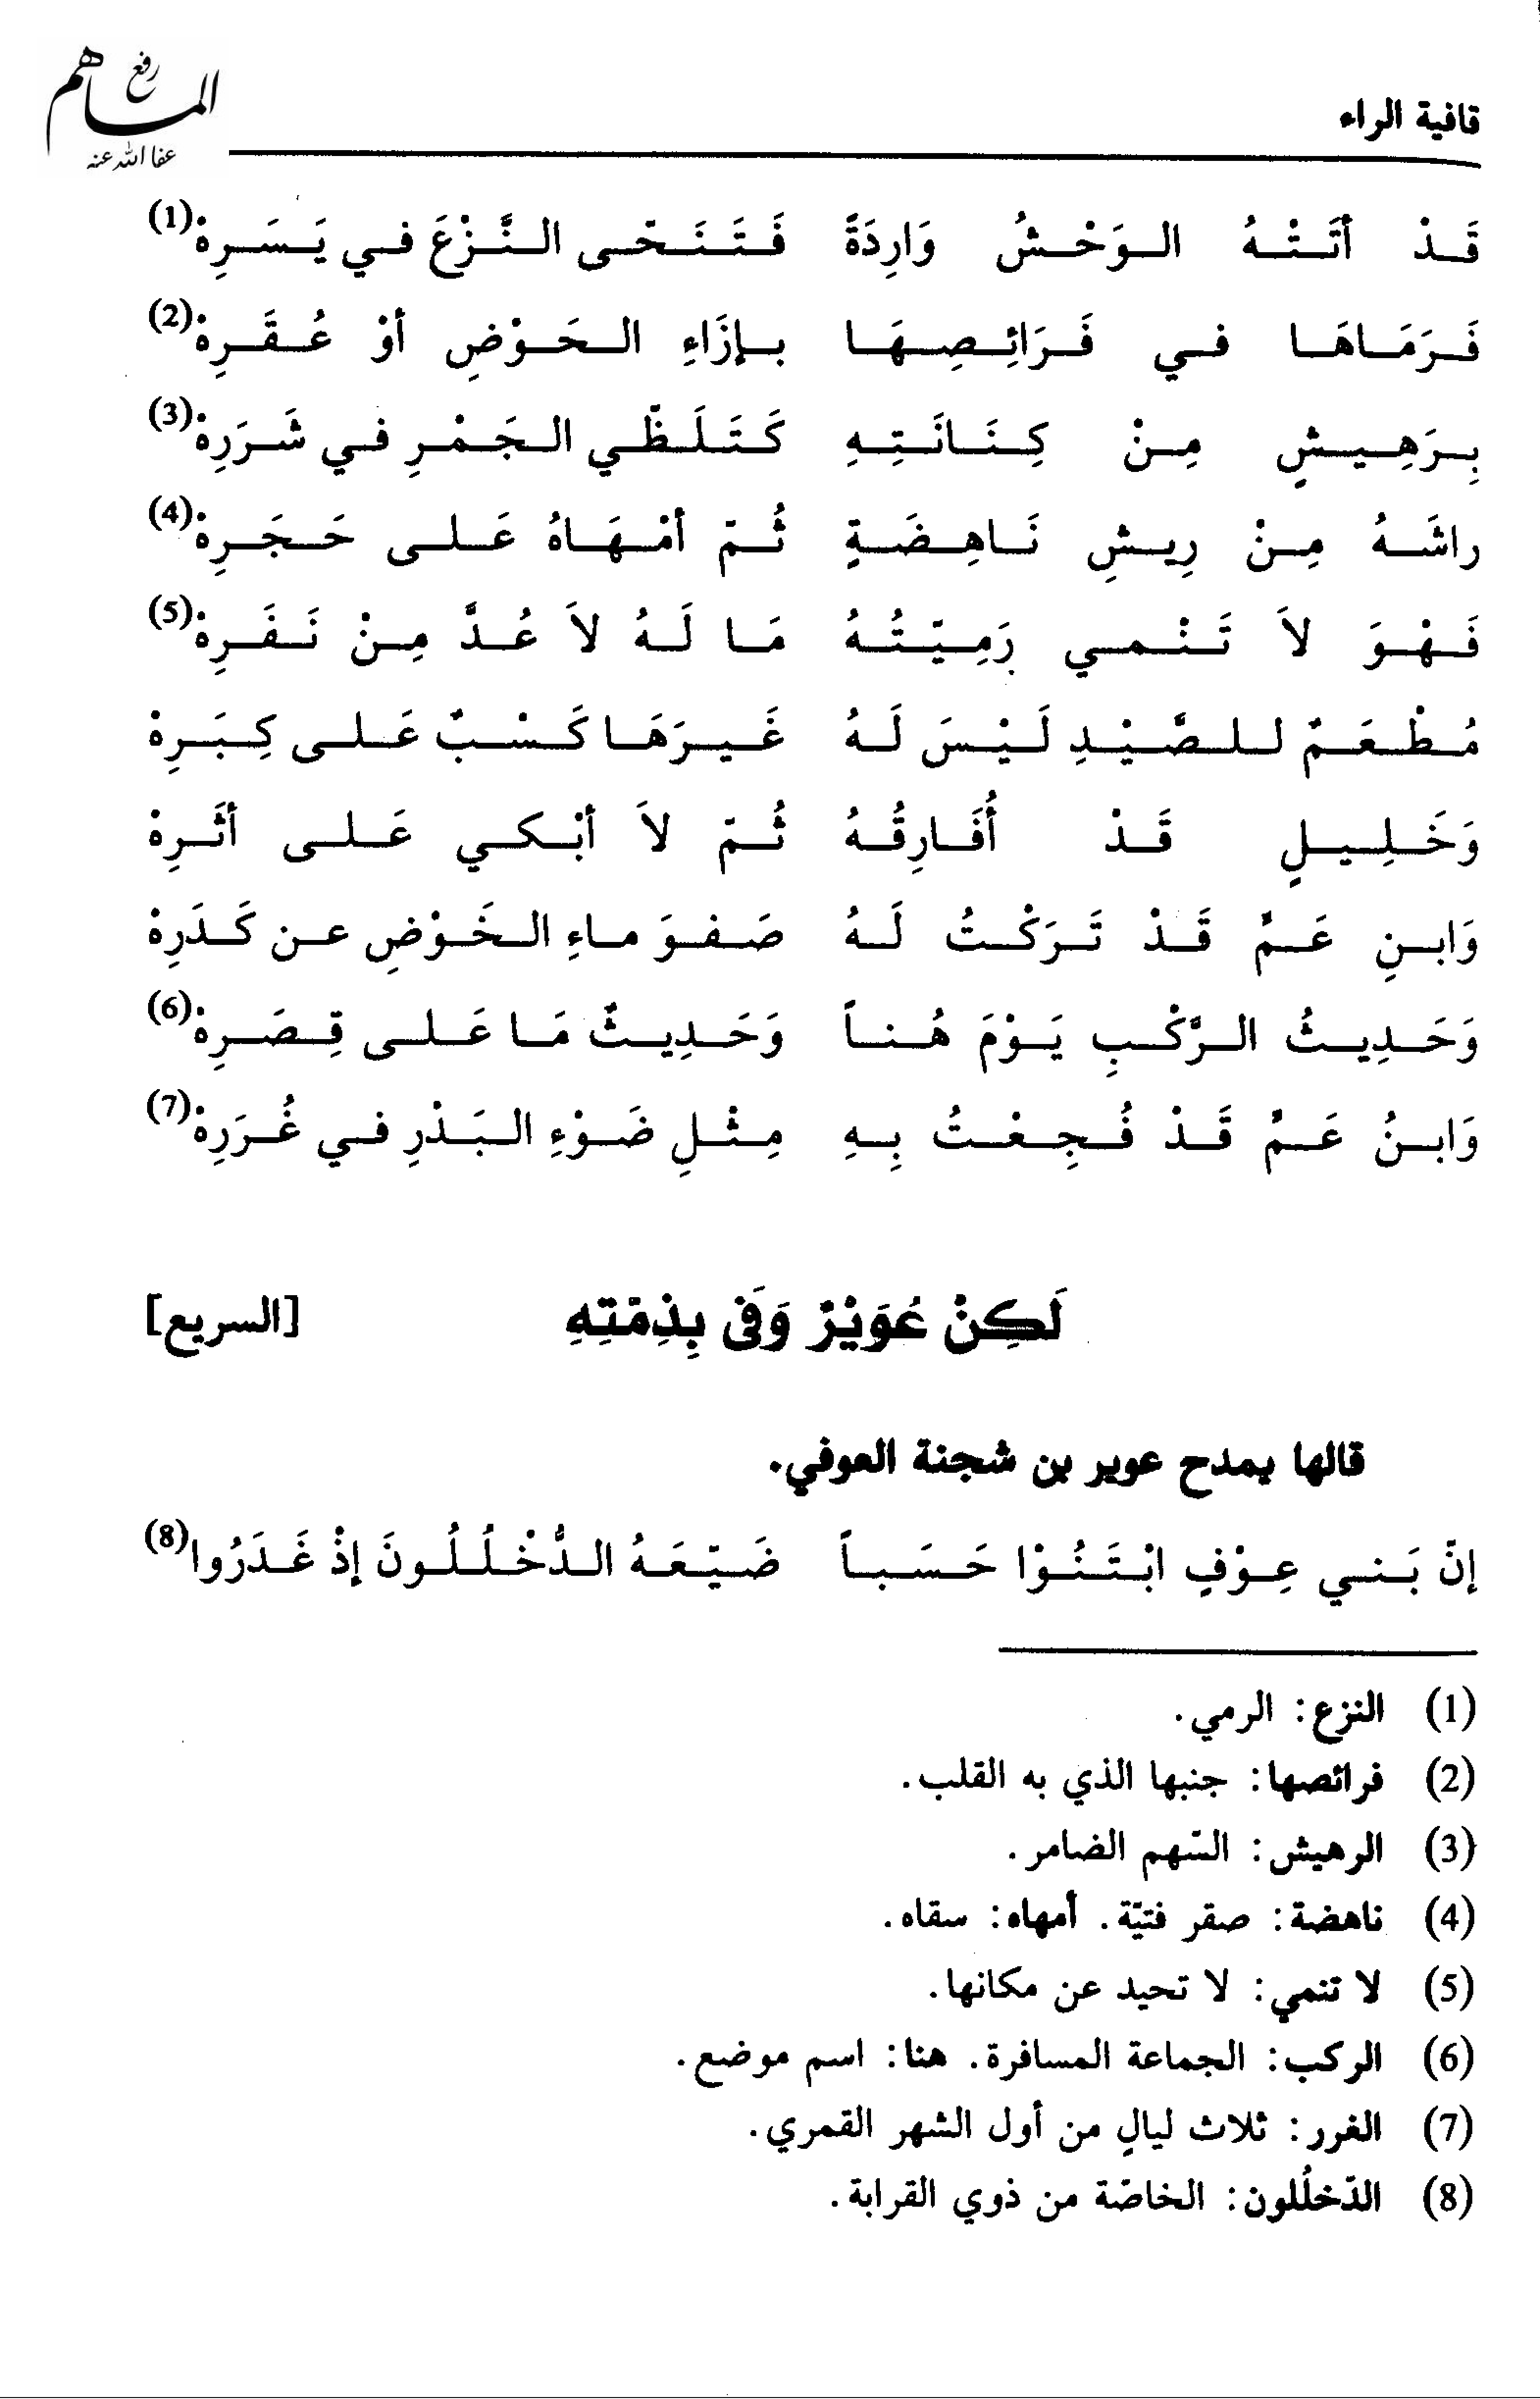 رفع
المساهم
عفا الله عنه
قافية الراء
قَدْ أتَتْهُ الوَحْشُ وَارِدَةً فَتَنَحّى النَّزْعَ في يَسَرِهْ(1)
فَرَمَاهَا في فَرَائِصِهَا بإزَاءِ الحَوْضِ أوْ عُقَرِهْ(2)
بِرَهِيشٍ مِنْ كِنَانَتِهِ كَتَلَظّي الجَمْرِ في شَرَرِهْ(3)
راشَهُ مِنْ رِيشِ نَاهِضَةٍ ثُمّ أمْهَاهُ عَلى حَجَرِهْ(4)
فَهْوَ لاَ تَنْمي رَمِيّتُهُ مَا لَهُ لاَ عُدَّ مِنْ نَفَرِهْ(5)
مُطْعَمٌ للصَّيْدِ لَيْسَ لَهُ غَيرَهَا كَسْبٌ عَلى كِبَرِهْ
وَخَلِيلٍ قَدْ أُفَارِقُهُ ثُمّ لاَ أبْكي عَلى أثَرِهْ
وَابنِ عَمٍّ قَدْ تَرَكْتُ لَهُ صَفوَ ماءِ الخَوْضِ عن كَدَرِهْ
وَحَدِيثُ الرَّكْبِ يَوْمَ هُناً وَحَدِيثٌ مَا عَلى قِصَرِهْ(6)
وَابنُ عَمٍّ قَدْ فُجِعْتُ بِهِ مِثْلِ ضَوْءِ البَدْرِ في غُرَرِهْ(7)
لَكِنْ عُوَيْرٌ وَفَى بِذِمّتِهِ [السريع]
قالها يمدح عوير بن شجنة العوفي.
إنّ بَني عِوْفٍ ابْتَنُوْا حَسَباً ضَيّعَهُ الدُّخْلُلُونَ إذْ غَدَرُوا(8)
(1) النزع: الرمي.
(2) فرائصها: جنبها الذي به القلب.
(3) الرهيش: السّهم الضامر.
(4) ناهضة: صقر فتيّة. أمهاه: سقاه.
(5) لا تنمي: لا تحيد عن مكانها.
(6) الركب: الجماعة المسافرة. هنا: اسم موضع.
(7) الغرر: ثلاث ليالٍ من أول الشهر القمري.
(8) الدّخلُلون: الخاصّة من ذوي القرابة.